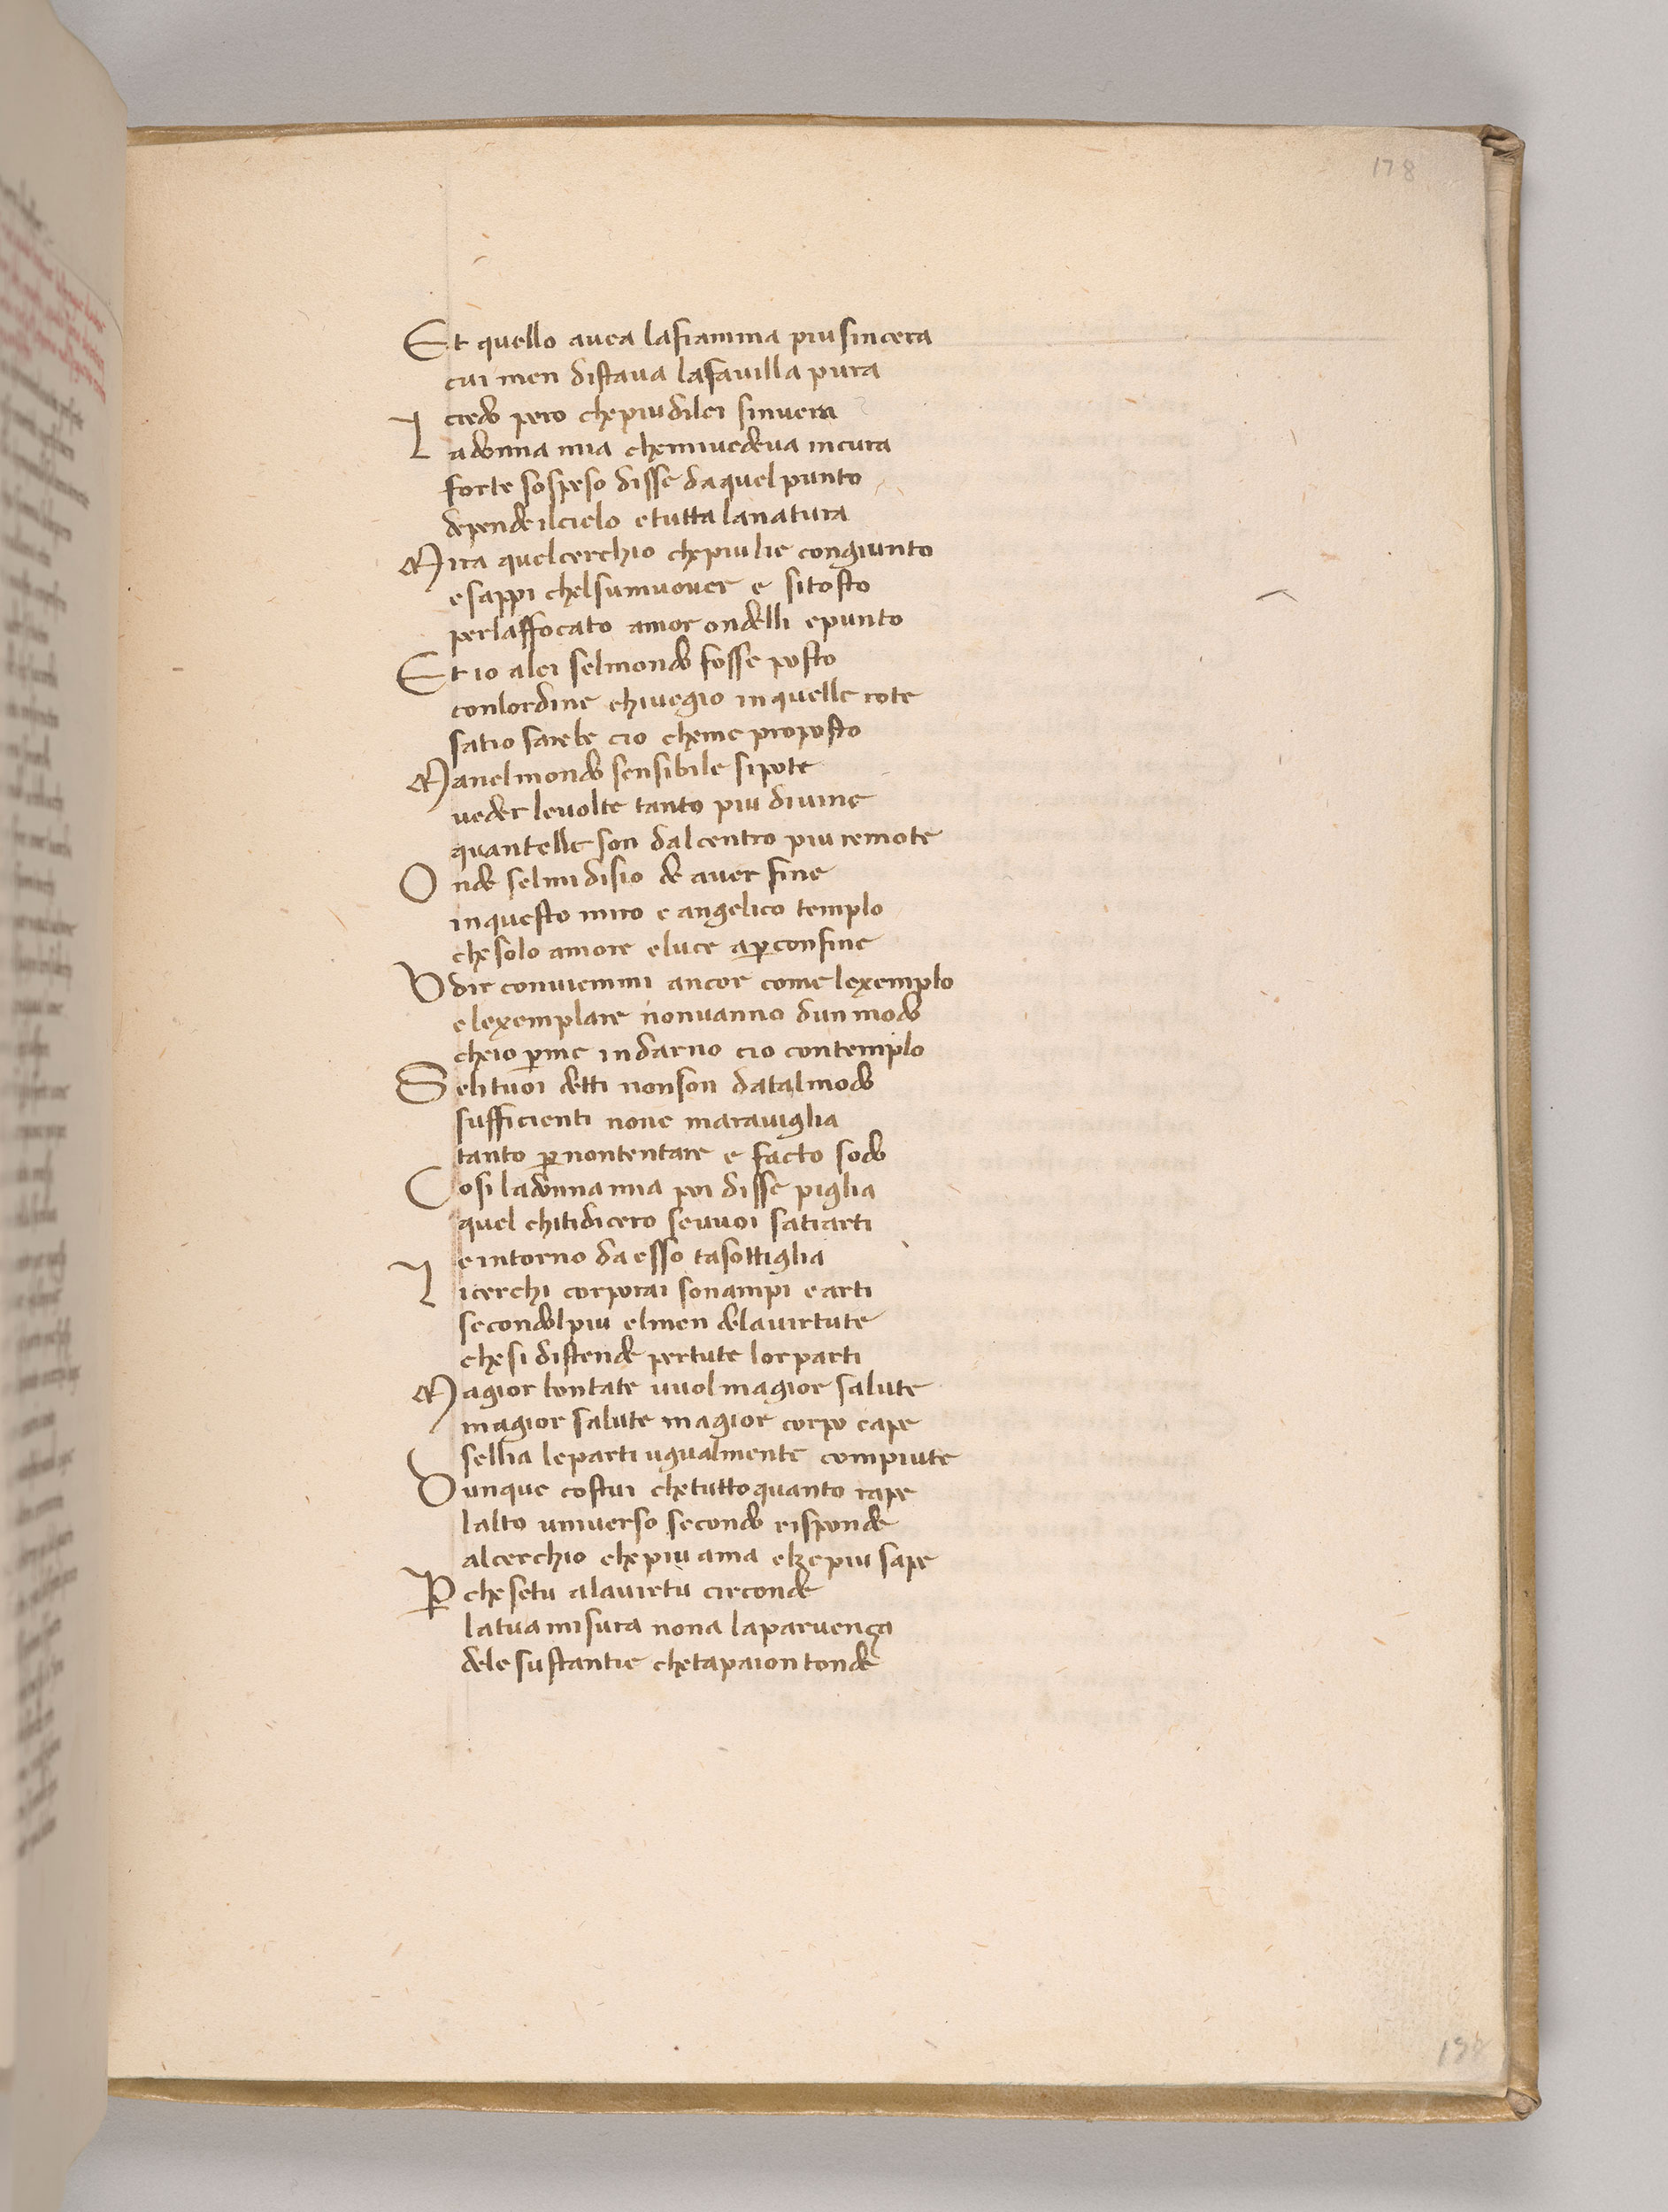 178
Et quello avea lafiamma piu sincera
cui men distava lafavilla pura
credo pero chepiudilei sinvera
Ladonna mia chemmivedeva incura
forte sospeso disse daquel punto
depende ilcielo e tutta la natura
Mira quelcerchio chepiulie congiunto
e sappi chelsumuover e si tosto
perlaffocato amor ondelli epunto
Et io alei selmondo fosse posto
conlordine chivegio in quelle rote
satio sarebe cio cheme proposto
Manelmondo sensibile si pote
veder levolte tanto piu divine
quantelle son dalcentro piu remote
Onde selmi disio de aver fine
in questo miro e angelico templo
che solo amore e luce a ꝑ confine
Vdir conviemmi ancor come lexemplo
e lexemplare nonvanno dun modo
cheio ꝑme indarno cio contemplo
Seli tuoi detti nonson datalmodo
sufficienti none maraviglia
tanto ꝑ nontentare e facto sodo
Cosi ladonna mia poi disse piglia
quel chitidicero sevuoi satiarti
e intorno da esso tasottiglia
Licerchi corporai sonampi e arti
secondolpiu elmen delavirtute
che si distende pertute lor parti
Magior bontate vuol magior salute
magior salute magior corpo cape
sellia leparti ugualmente compiute
Dunque costui chetutto quanto rape
lalto universo secondo risponde
alcerchio che piu ama elze piu sape
Ꝑ che setu alavirtu circonde
latua misura nona laparvença
dele sustantie chetapaion tonde